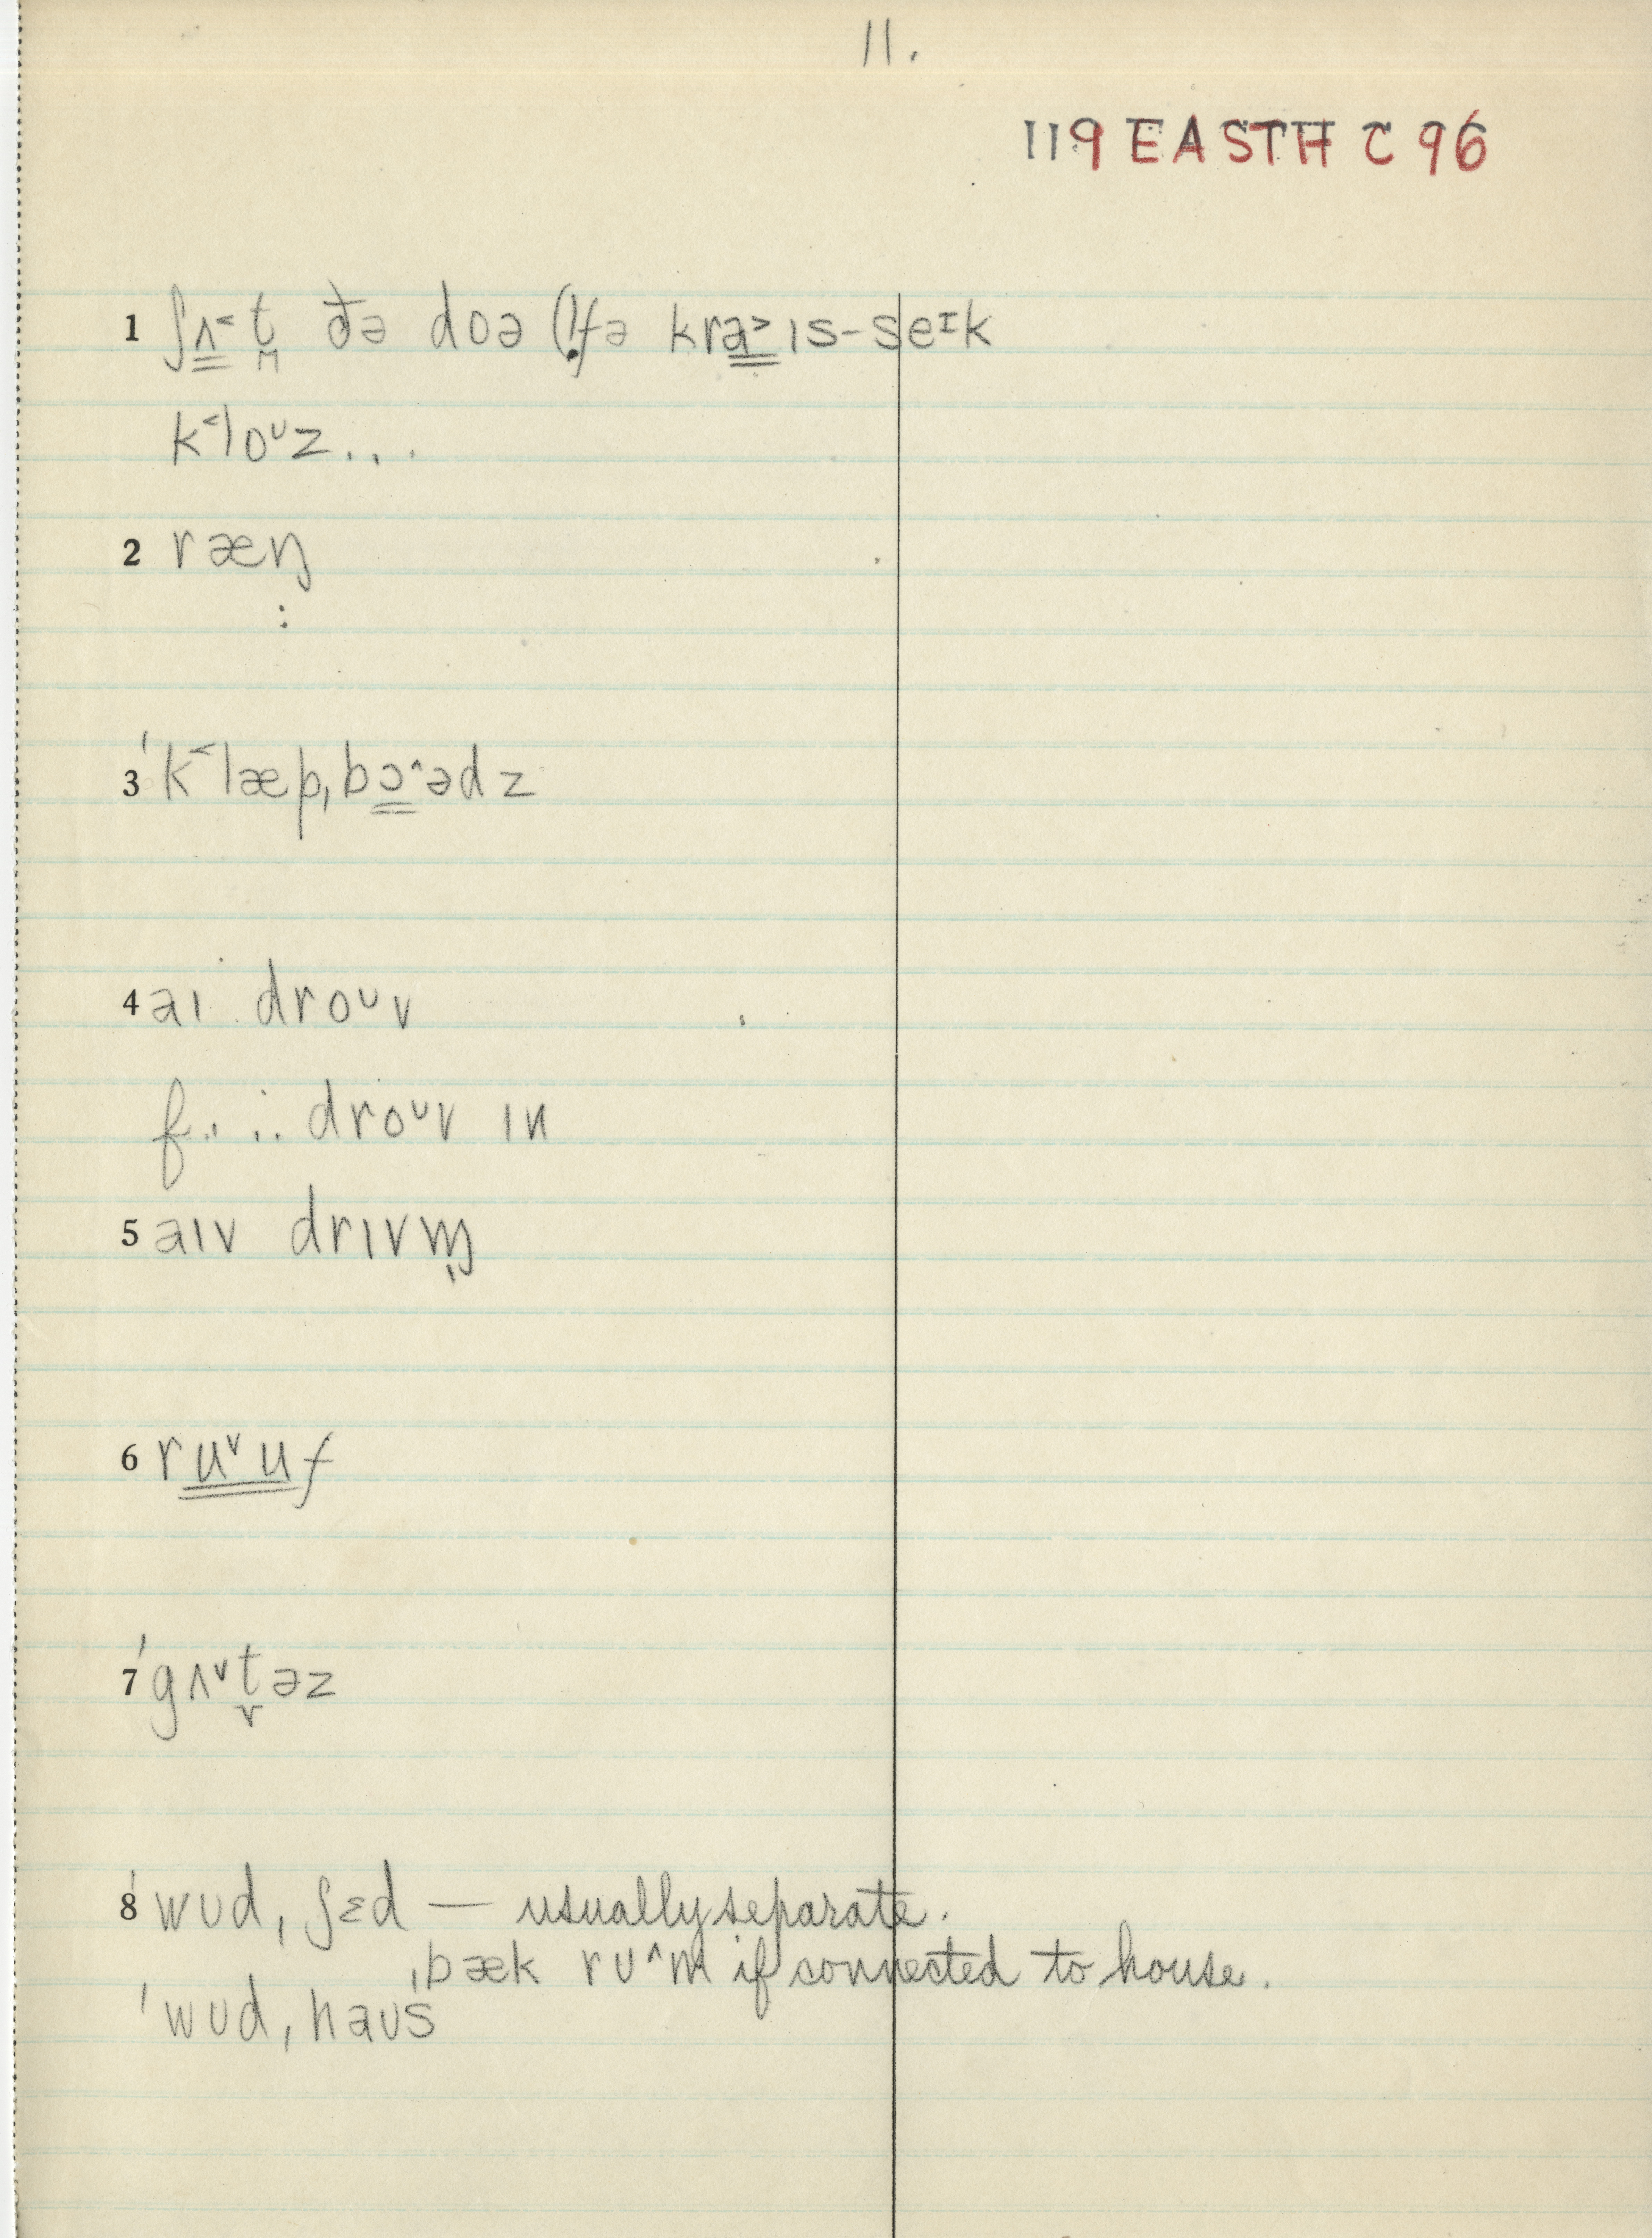 11.
119 EASTH C 96
1 ʃʌ˂t̪ ðə doə (!fə kra˃ɪs-seᶦk
k˂loᶸz...
2 ræŋ
:
3 ˈk˂læpˌbɔ^ədz
4 aɪ droᶸv
f. . . . droᶸv ɪn
5 aɪv drɪvm̩
6 ruˇuf
7 ˈgʌˇt̬əz
8 ˈwʊdˌʃɛd — usually separate.
ˌbæk ˈrʊ^m if connected to house.
ˈwʊdˌhaʊs